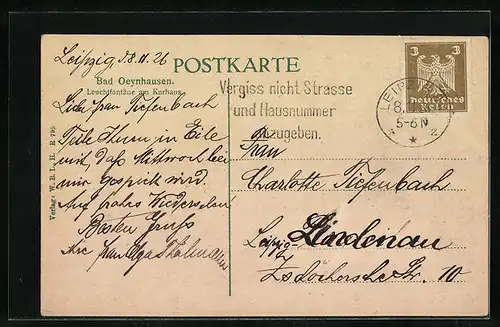 Leipzig d. 8. 11. 26
Bad Oeynhausen.
Leuchtfontäne am Kurhaus.
POSTKARTE
Liebe Frau Tiefenbach
Teile Ihnen in Eile
mit, daß Mittwoch bei
mir gespielt wird.
Auf frohes Wiedersehen
Besten Gruß
Ihre Frau Olga
Verlag: W. B. L. H. R 795
Vergiss nicht Strasse
und Hausnummer
anzugeben.
3 3
Deutsches
Reich
LEIPZIG
8.
5-6 N
* 2
Frau
Charlotte Tiefenbach
Leipzig-Lindenau
Zschochersche Str. 10